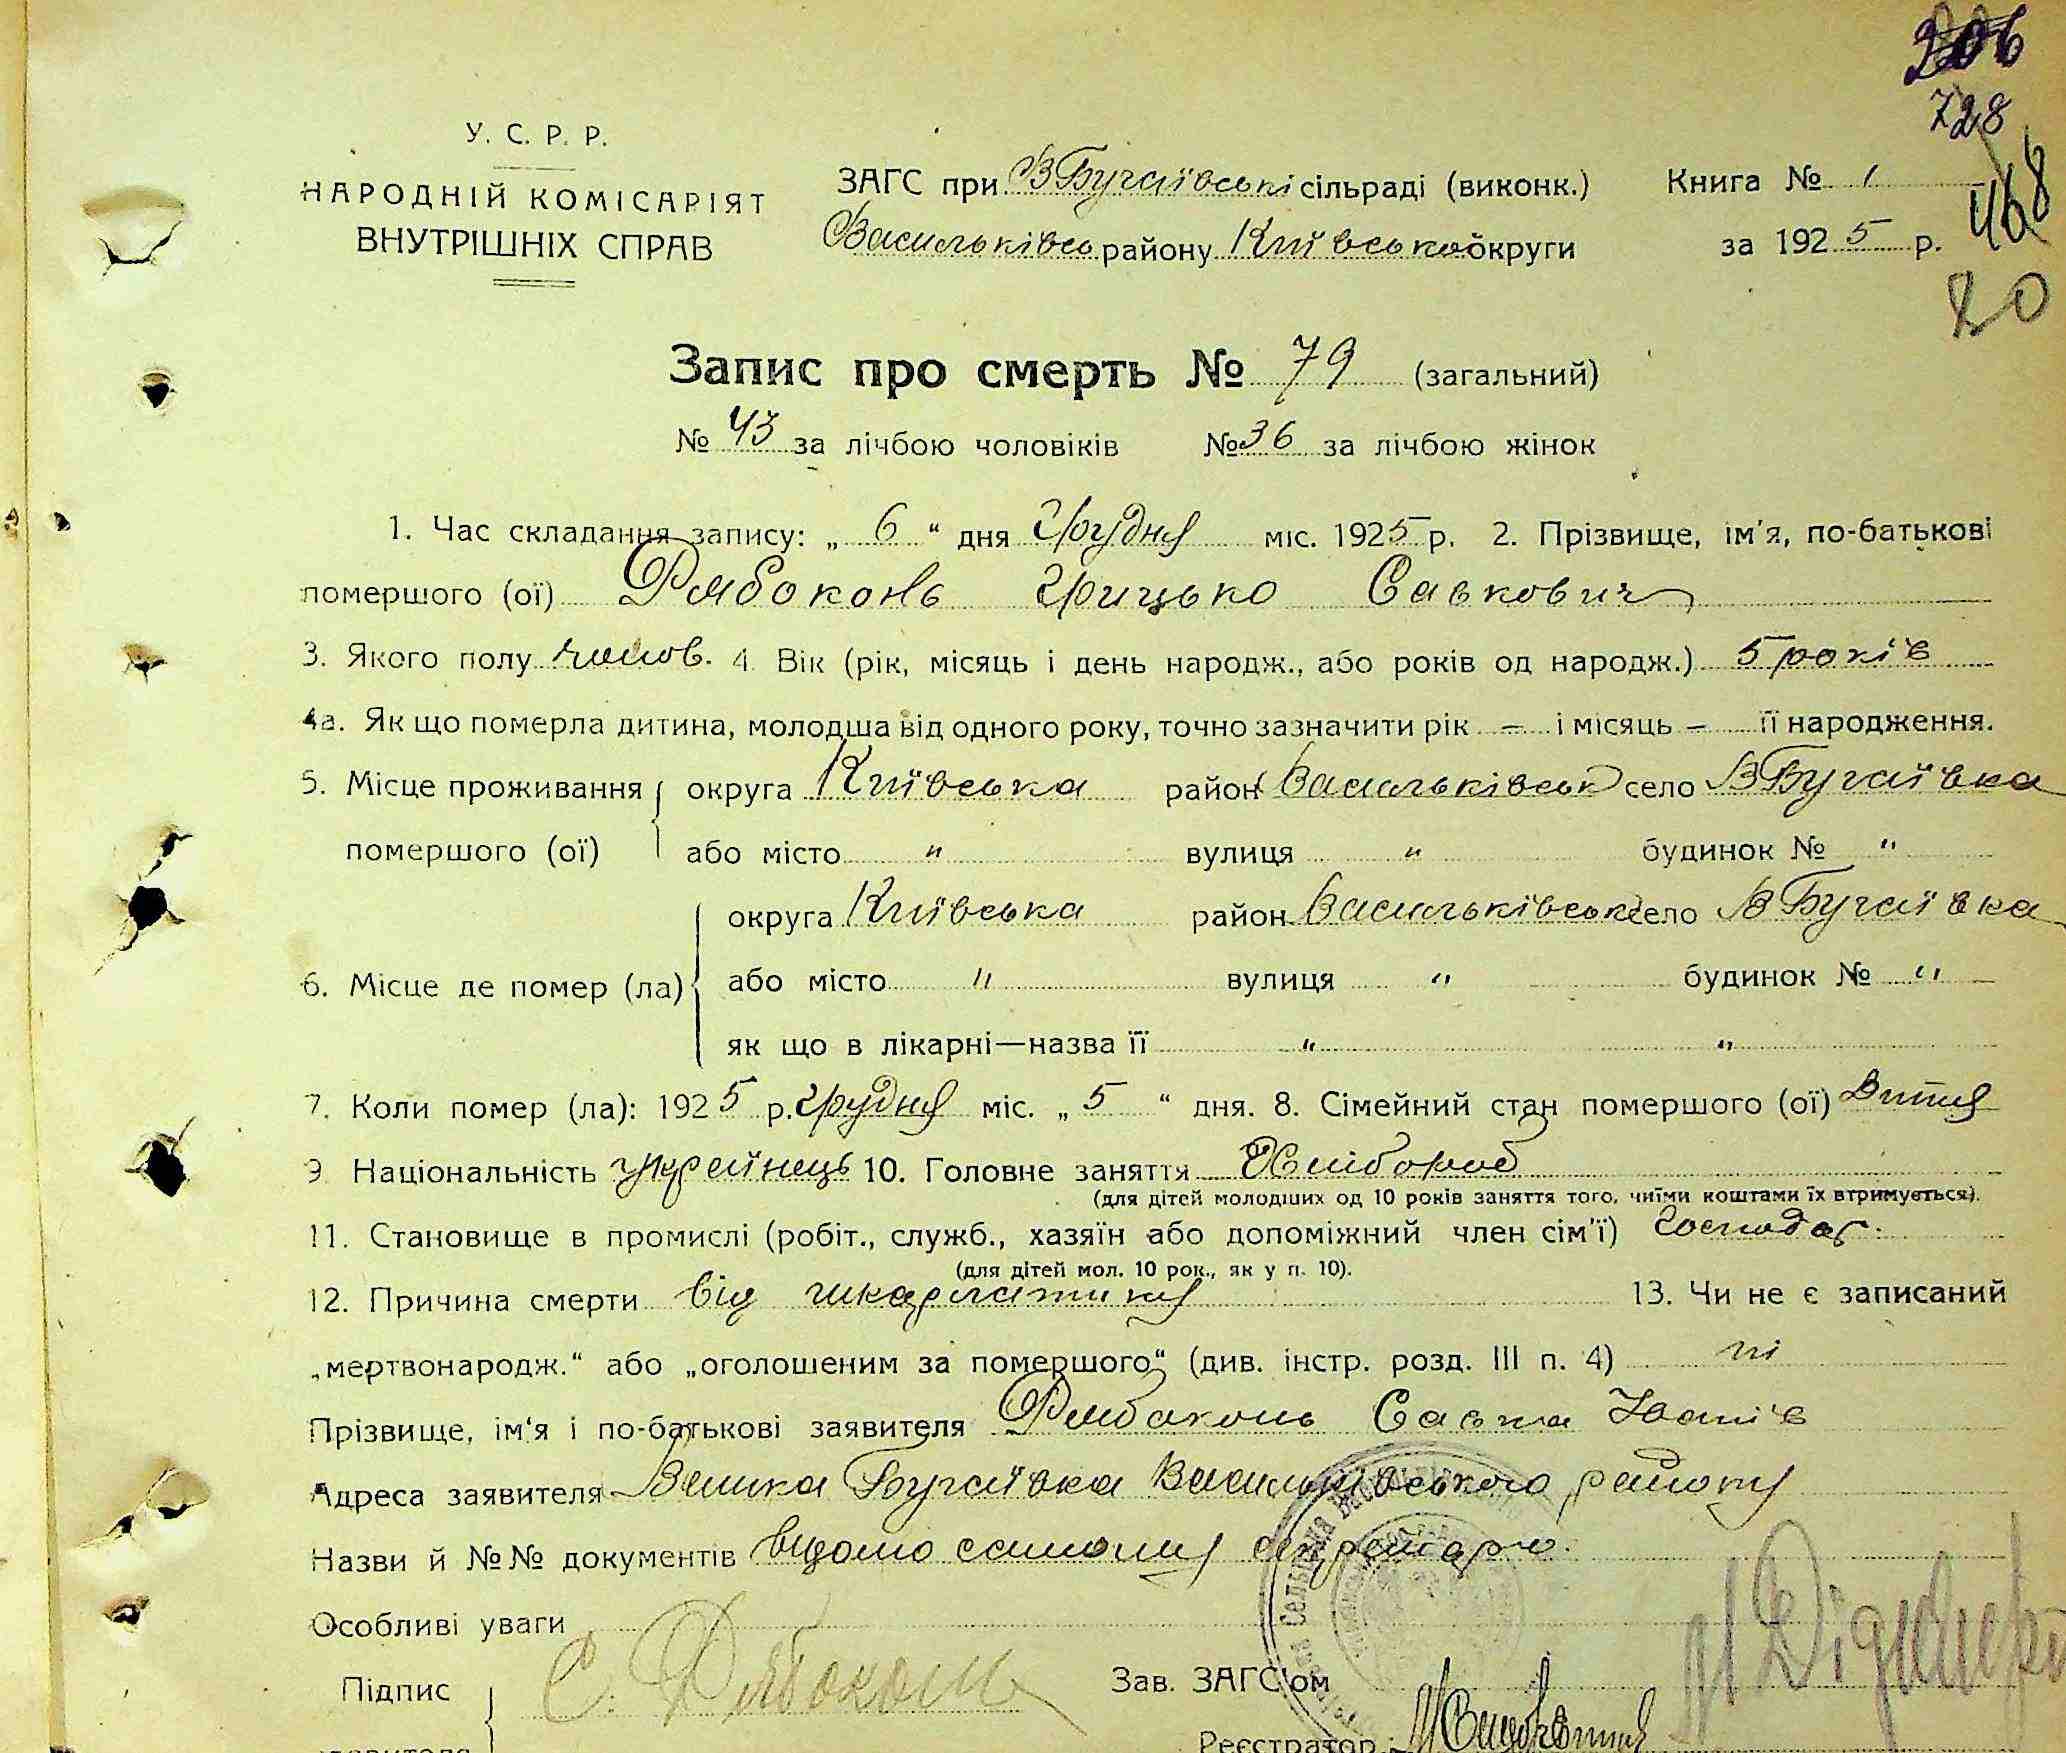 206
728
468
80
У. С. Р. Р.
НАРОДНІЙ КОМІСАРІЯТ
ВНУТРІШНІХ СПРАВ
ЗАГС при В Бугаївські сільраді (виконк.)
Васильківсь району Київської округи
Книга № 1
за 1925 р.
Запис про смерть № 79 (загальний)
№ 43 за лічбою чоловіків № 36 за лічбою жінок
1. Час складання запису: „ 6 “ дня Грудня міс. 1925 р. 2. Прізвище, ім'я, по-батькові
помершого (ої) Рябоконь Грицько Савкович
3. Якого полу чолов. 4. Вік (рік, місяць і день народж., або років од народж.) 5 років
4а. Як що померла дитина, молодша від одного року, точно зазначити рік – і місяць – її народження.
5. Місце проживання округа Київська район Васильківськ село В Бугаївка
помершого (ої) або місто " вулиця " будинок № "
округа Київська район Васильківськ село В Бугаївка
6. Місце де помер (ла) або місто " вулиця " будинок № "
як що в лікарні—назва її " "
7. Коли помер (ла): 1925 р. Грудня міс. „ 5 “ дня. 8. Сімейний стан помершого (ої) Дитя
9 Національність українець 10. Головне заняття Хлібороб
(для дітей молодших од 10 років заняття того, чиїми коштами їх втримується).
11. Становище в промислі (робіт., служб., хазяїн або допоміжний член сім'ї) Господар.
(для дітей мол. 10 рок., як у п. 10).
12. Причина смерти від шкарлятини 13. Чи не є записаний
„мертвонародж.“ або „оголошеним за помершого“ (див. інстр. розд. III п. 4) ні
Прізвище, ім'я і по-батькові заявителя Рябоконь Савка Іванів
Адреса заявителя Велика Бугаївка Васильківського району
Назви й №№ документів відомо самому секретарю.
Особливі уваги
Підпис С. Рябоконь Зав. ЗАГС'ом
Реєстратор